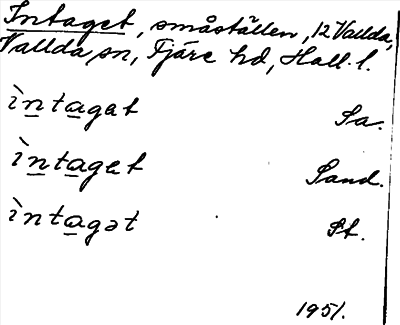 Intaget, småställen, 12 Vallda,
Vallda sn, Fjäre hd, Hall. l.
ìntagat Sa.
ìntaget Sand.
ìntagət St.
1951.